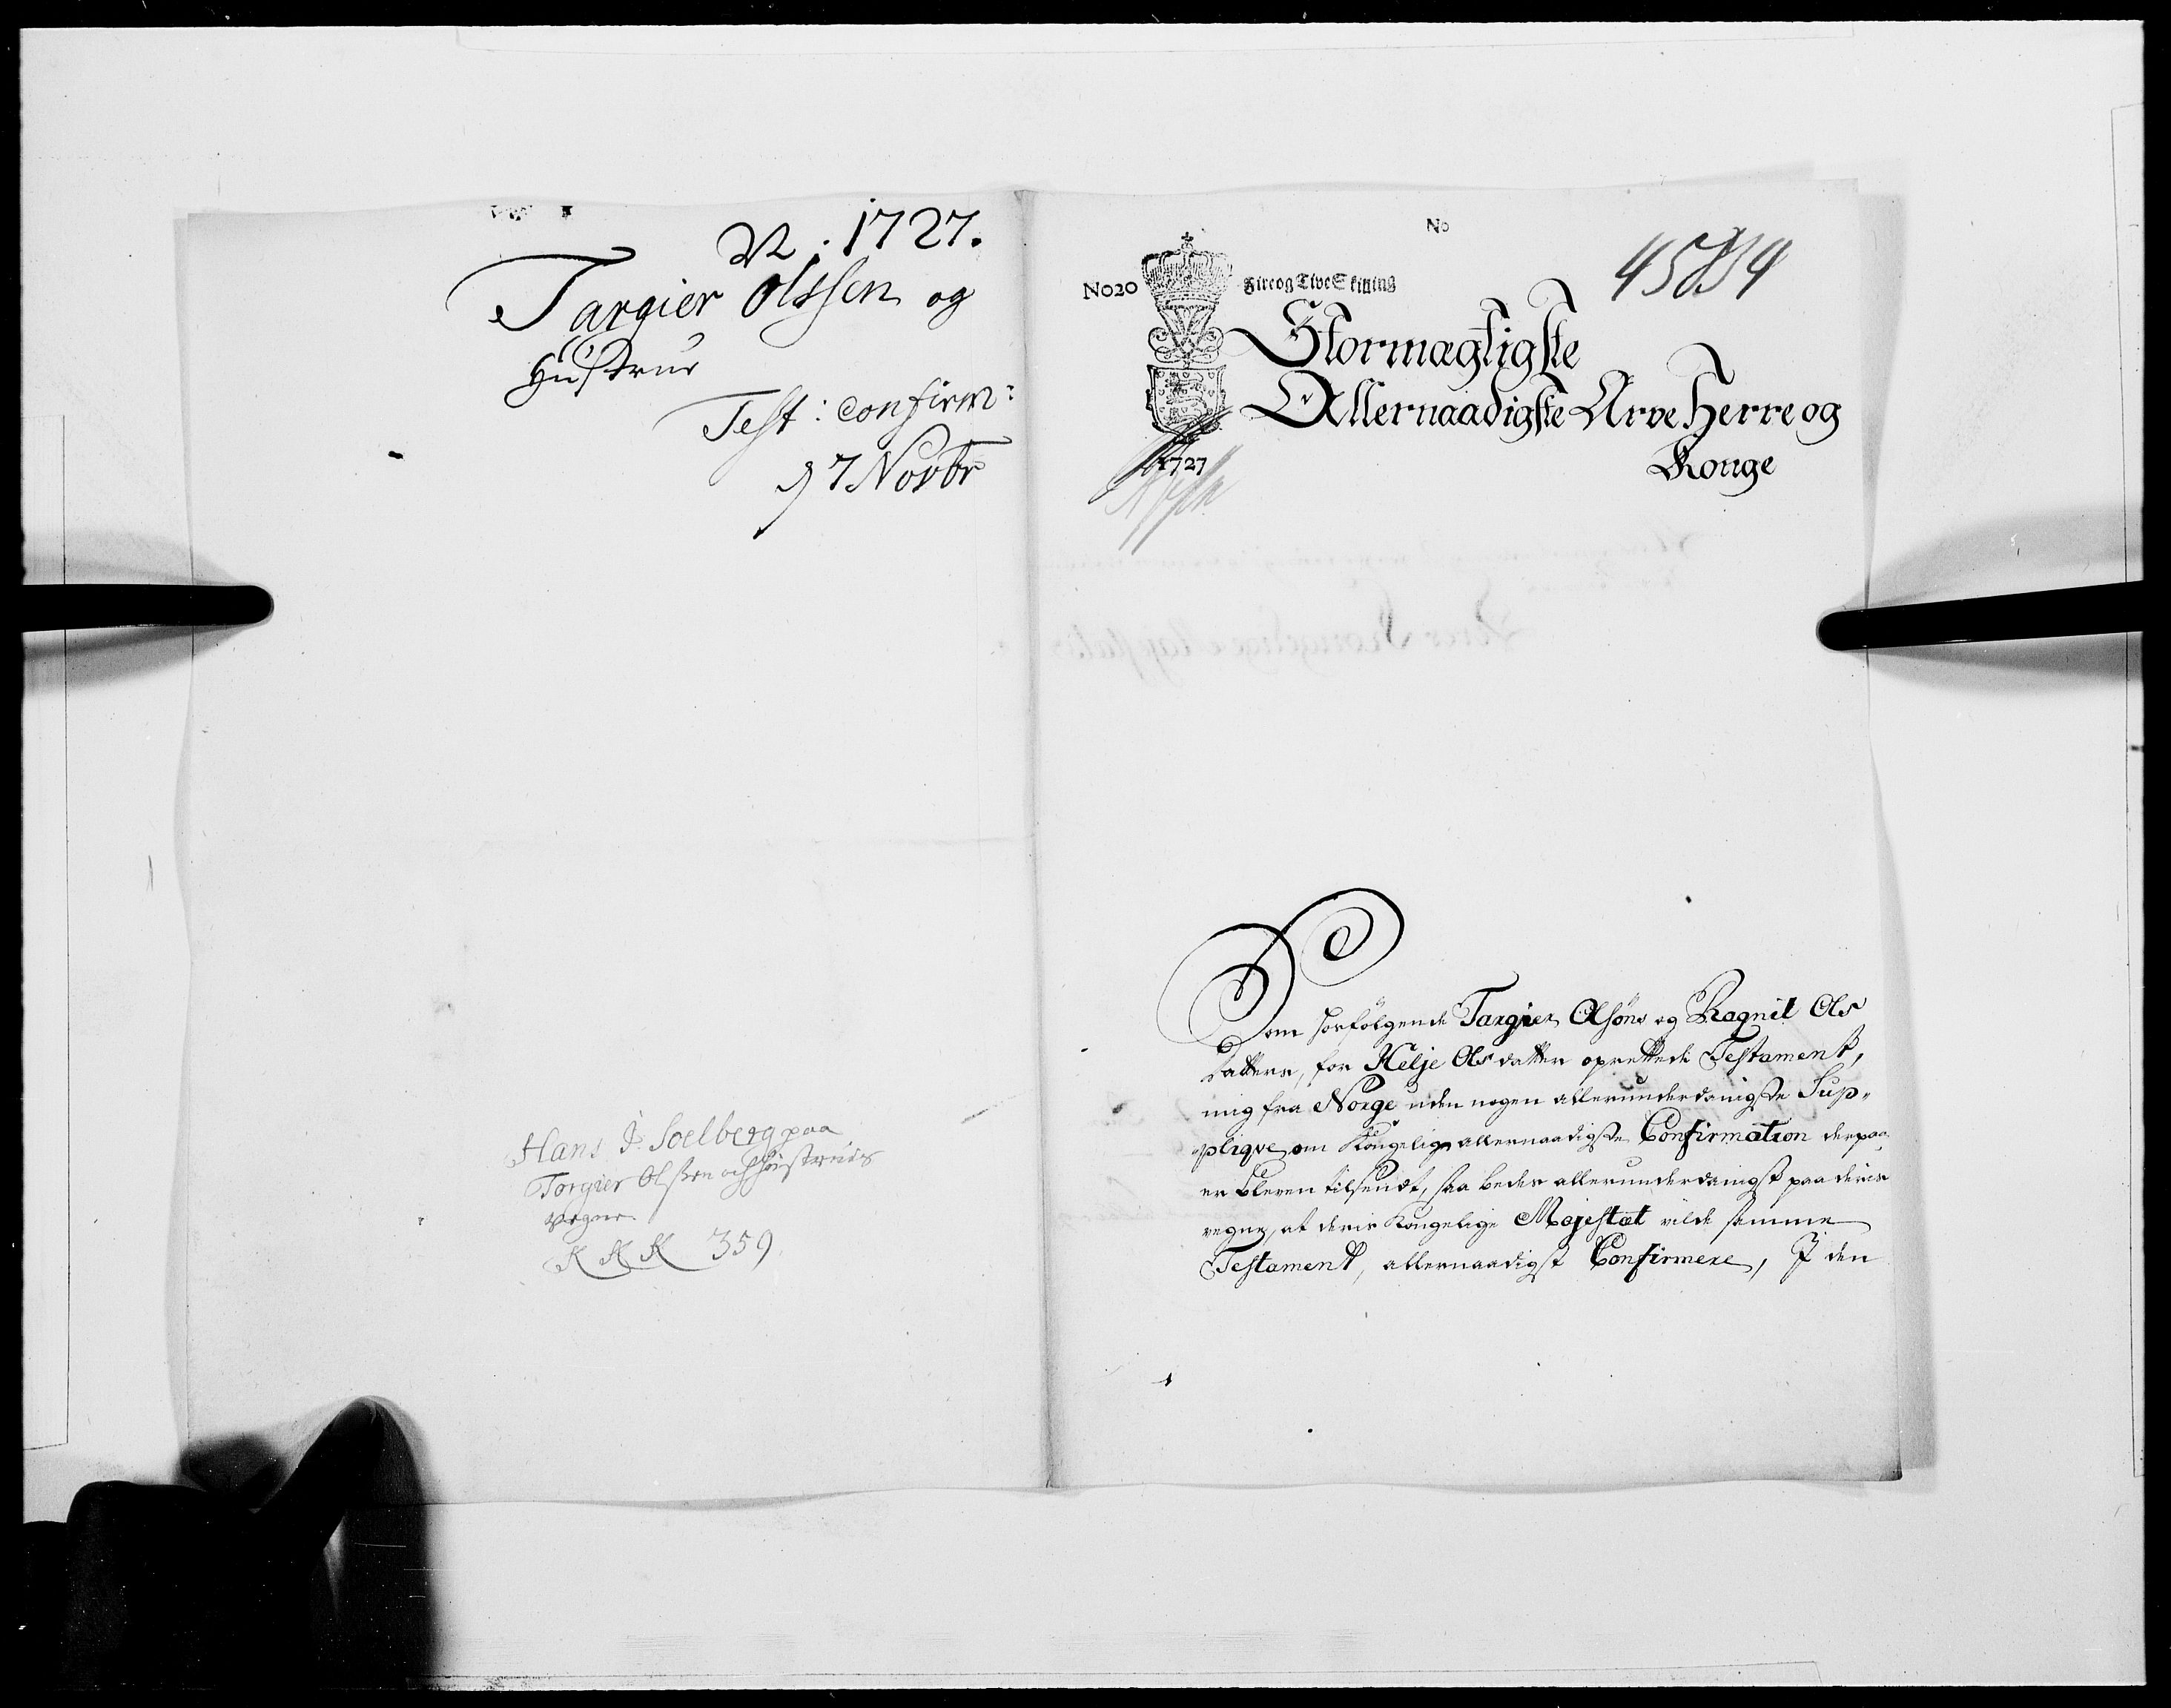 N : 1727.
Targier Olssen og
Hustrue
Test : confirm :
D 7 Novbr
Hans J. Soelberg paa
Torgier Olssen och Hustrues
vegne
K K K 359
No
4584
No20
Fire og Tive Skilling
Stormægtigste
Allernaadigste Arve Herre og
Konge
1727
Som hosfølgende Targier Olsøns og Ragnil Ols
datters, for Helje Olsdatter oprettede Testament,
mig fra Norge uden nogen allerunderdanigste Sup-
plique om Kongelig allernaadigste Confirmation derpaa
er bleven tilsendt, saa beder allerunderdanigst paa deris
vegne, at deris Kongelige Majestæt vilde samme
Testament, allernaadigst Confirmere, I den